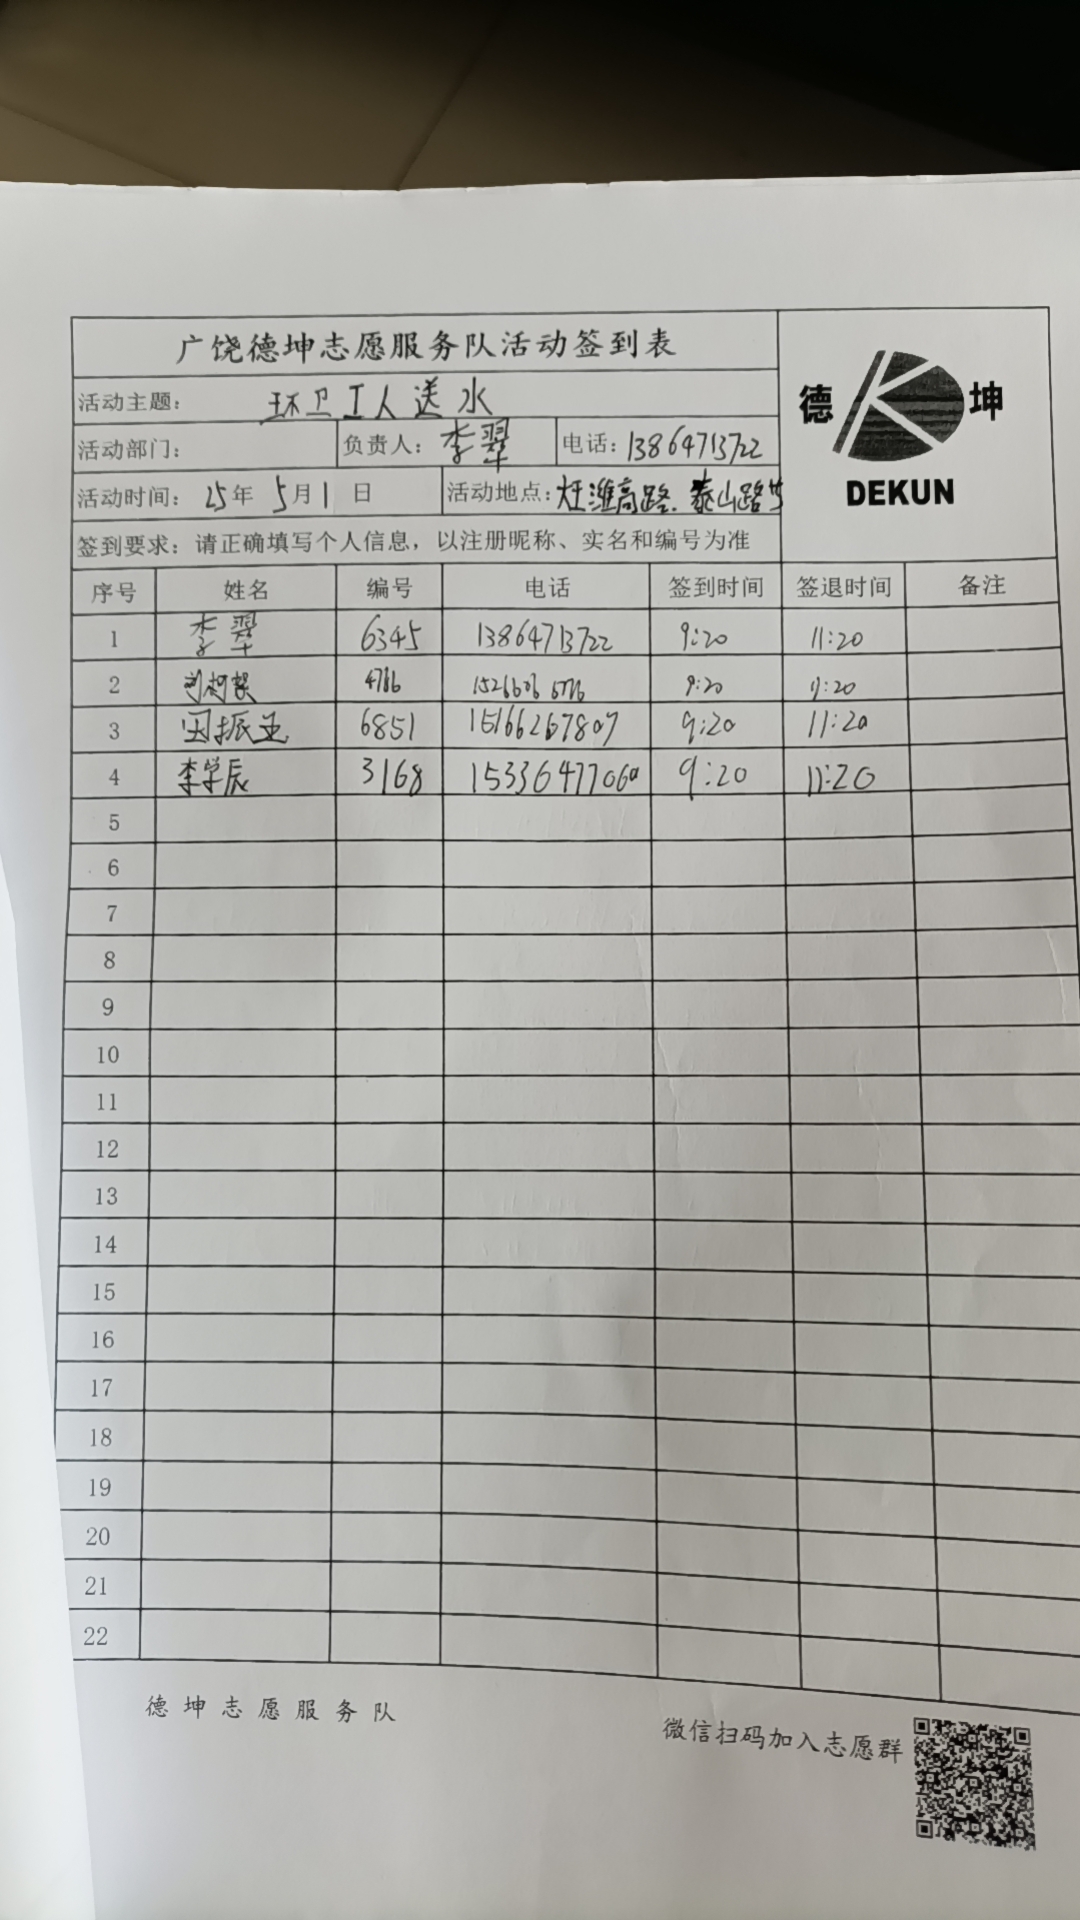 广饶德坤志愿服务队活动签到表
德 坤
DEKUN
活动主题： 环卫工人送水
活动部门： 负责人：李翠 电话：13864713722
活动时间：25年 5月1日 活动地点： 潍高路、泰山路
签到要求：请正确填写个人信息，以注册昵称、实名和编号为准
序号 姓名 编号 电话 签到时间 签退时间 备注
1 李翠 6345 13864713722 9:20 11:20
2 9:20 11:20
3 田振亚 6851 15166267807 9:20 11:20
4 李学辰 3168 15336477060 9:20 11:20
5
6
7
8
9
10
11
12
13
14
15
16
17
18
19
20
21
22
德坤志愿服务队
微信扫码加入志愿群